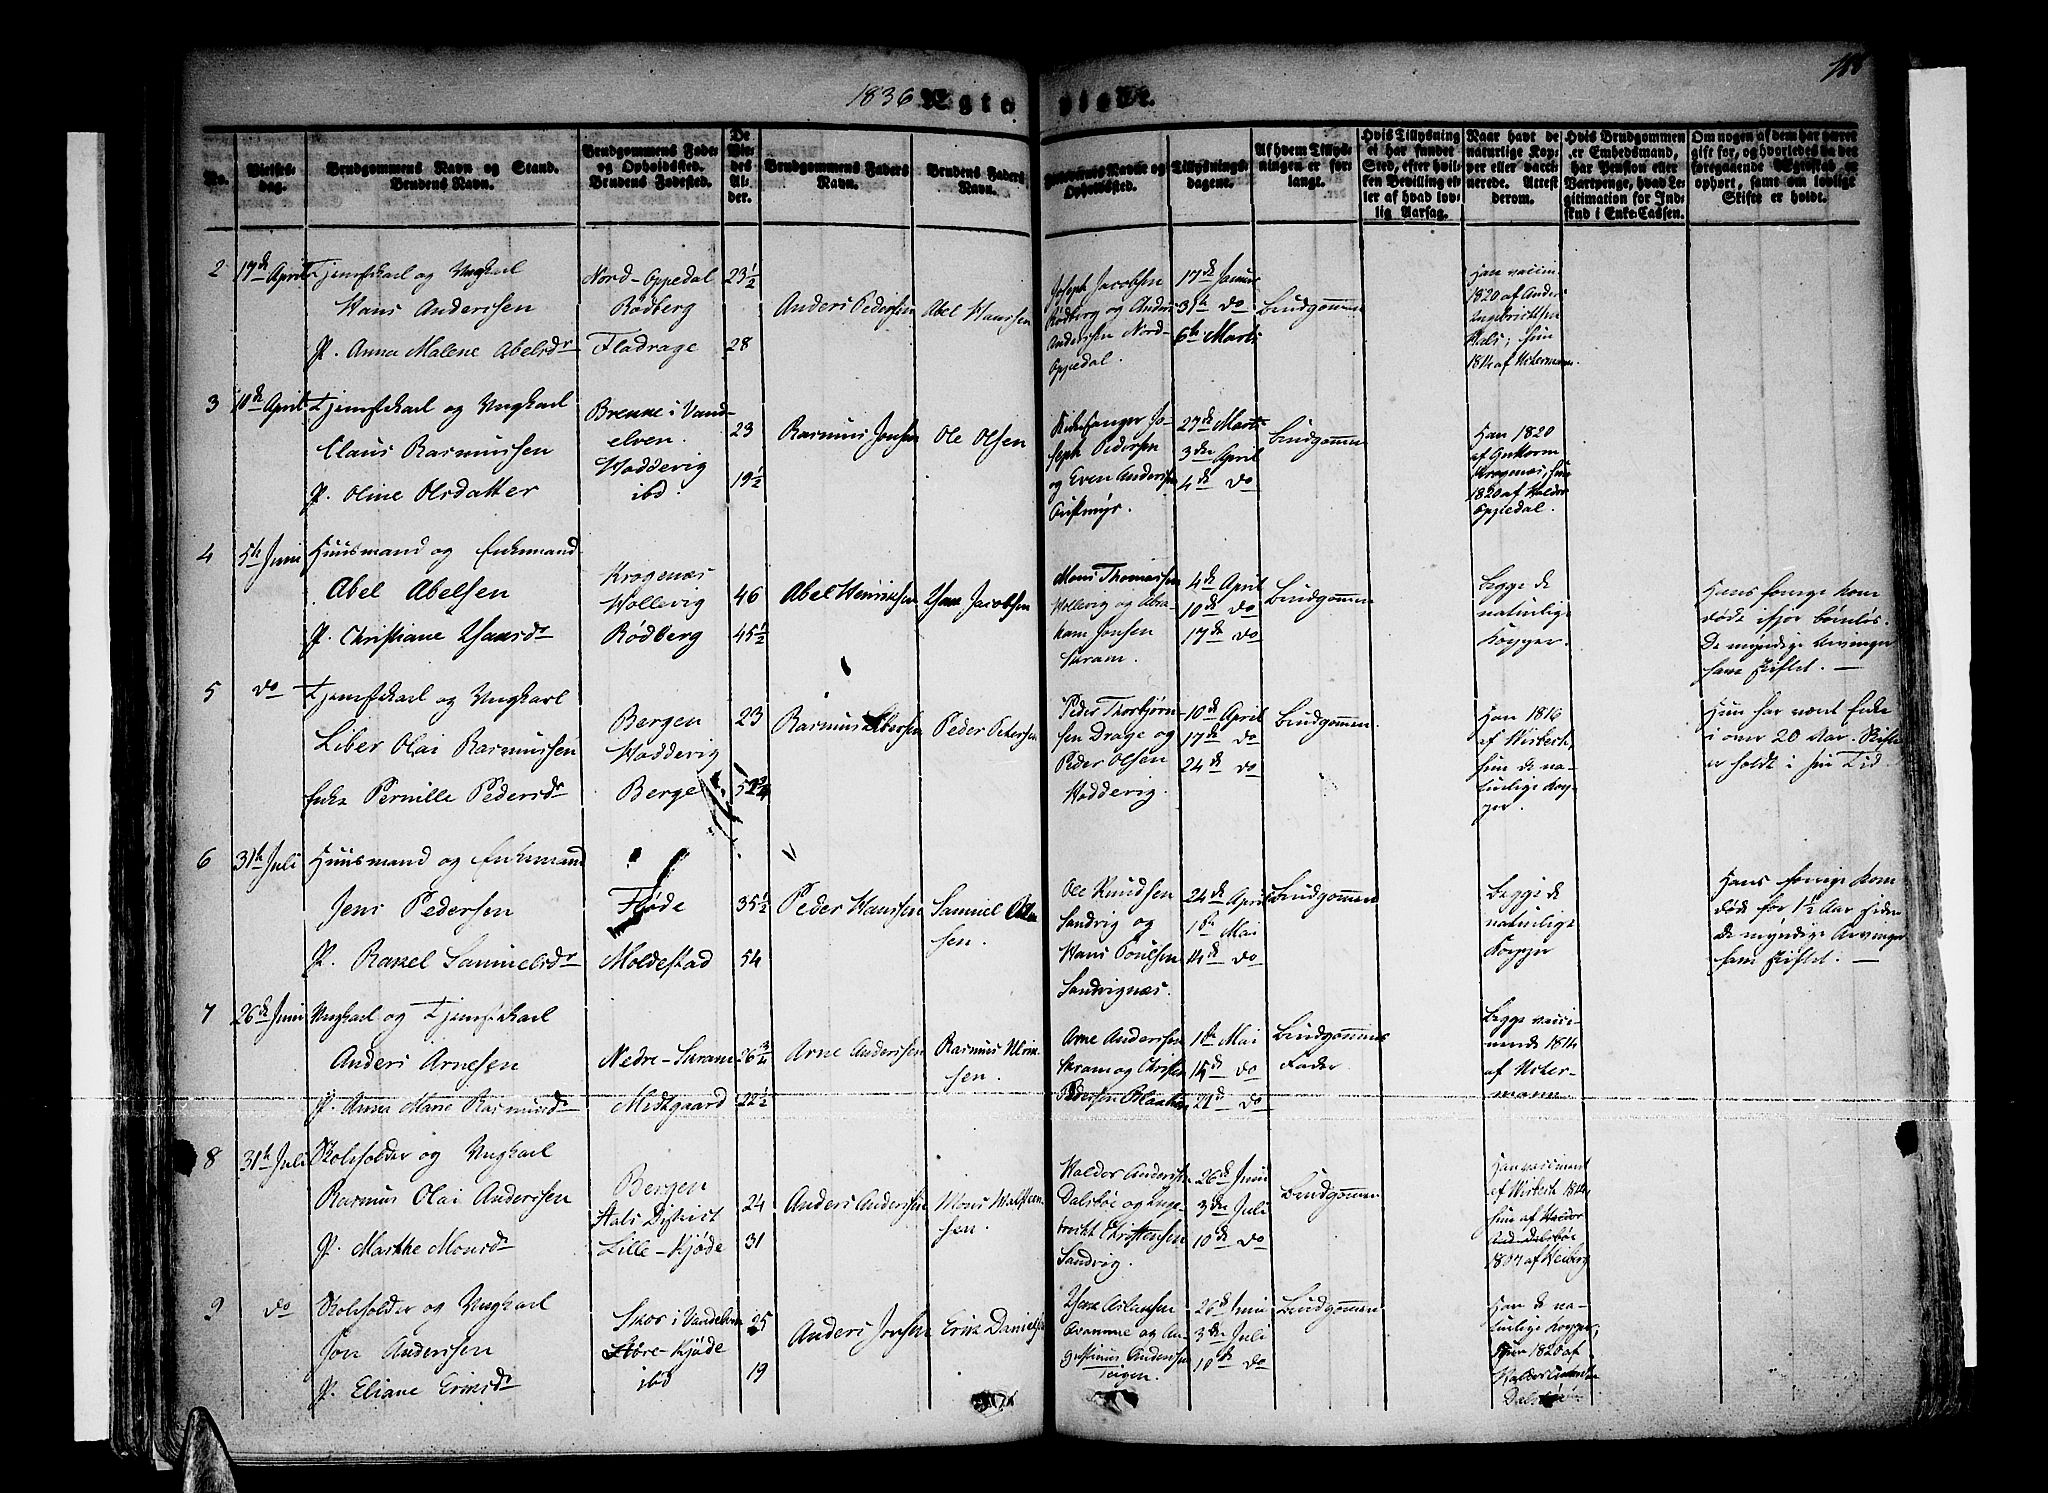 1836 Ægteviede.
188
No.
Vielses-
dag.
Brudgommens Navn og Stand.
Brudens Navn.
Brudgommens Føde-
og Opholdssted.
Brudens Fødested.
De
Vie-
des
Al-
der.
Brudgommens Faders
Navn.
Brudens Faders
Navn.
Forlovernes Navne og
Opholdssted.
Tillysnings-
dagene.
Af hvem Tillys-
ningen er for-
langt.
Hvis Tillysning
ei har fundet
Sted, efter hvil-
ken Bevilling el-
ler af hvad lov-
lig Aarsag.
Naar havt de
naturlige Kop-
per eller vacci-
nerede. Attest
derom.
Hvis Brudgommen
er Embedsmand,
har Pension eller
Vartpenge, hvad Le-
gitimation for Ind-
skud i Enke-Cassen.
Om nogen af dem har været
gift før, og hvorledes da det
foregaaende Ægteskab er
ophørt, samt om lovligt
Skifte er holdt.
2
17de April
Tjenstekarl og Ungkarl
Hans Anderssen
P. Anna Malene Abelsdr
Nord-Oppedal
Rødberg
Fladrage
23½
28
Anders Pederssen
Abel Hanssen
Joseph Jacobsen
Rødberg og Anders
Anderssen Nord-
Oppedal.
17de Januar
31te do
6te Marts
Brudgommen
Han vaccin.
1820 af Anders
Ingebrictsen
Hals; hun
1814 af Ustermann
3
10de April
Tjenstekarl og Ungkarl
Claus Rasmussen
P. Oline Olsdatter
Brekke i Vand-
elven.
Hadderig
ibd.
23
19½
Rasmus Jonsen
Ole Olsen
Kirkesanger Jo-
seph Pedersen
og Even Anderssen
27de Marts
3die April
4de do
Brudgommen
Han 1820
af Guttorm
Krogenæs, hun
1820 af Halder
Oppedal.
4
5te Juni
Huusmand og Enkemand
Abel Abelsen
P. Christiane Hansdr
Krogenæs
Hollevig
Rødberg
46
45½
Abel Henriksen
Hans Jacobsen
Mons Thomassen
Hollevig og Abra-
ham Jonsen
Særam.
4de April
10de do
17de do
Brudgommen
Begge de
naturlige
Kopper.
Hans forrige Kone
døde ifjor børnløs.
De myndige Arvinger
have skiftet. —
5
do
Tjenstekarl og Ungkarl
Liber Olai Rasmussen
Enke Pernille Pedersdr
Bergen
Hadderig
Berge
23
52¾
Rasmus Libersen
Peder Petersen
Peder Thorbjørn-
sen Drage og
Peder Olsen
Hadderig.
10de April
17de do
24de do
Brudgommen.
Han 1816
af Wisbech,
hun de na-
turlige Kop-
per.
Hun har været Enke
i over 20 Aar. Skifte
er holdt i sin Tid.
6
31te Juli
Huusmand og Enkemand
Jens Pedersen
P. Rakel Samuelsdr
Fløde
Moldestad
35½
54
Peder Hanssen
Samuel Olen
sen.
Ole Knudsen
Sandvig og
Hans Poulsen
Sandvignæs.
24de April
1ste Mai
14de do
Brudgommen
Begge de
naturlige
Kopper
Hans forrige Kone
døde for 1½ Aar siden
De myndige Arvinger
have skiftet. —
7
26de Juni
Ungkarl og Tjenstekarl
Anders Arnesen
P. Anna Marie Rasmusdr
Nedre-Særam
Midtgaard
26¾
22½
Arne Anderssen
Rasmus Ulrik-
sen.
Arne Anderssen
Særam og Christen
Pederssen
1ste Mai
15de do
21de do
Brudgommens
Fader
Begge vacci-
nerede 1814
af Uster-
mann
8
31te Juli
Skoleholder og Ungkarl
Rasmus Olai Anderssen
P. Marthe Monsdr
Bergen
Hals District
Lille-Kjøde
24
31
Anders Anderssen
Mons
sen.
Halder Andersen
Dalsbøe og Inge-
brict Christensen
Sandvig.
26de Juni
3die Juli
10de do
Brudgommen
Han vaccineret
af Wisbech 1814,
hun af Halder
Dalsbøe
1807 af Heiberg
9
do
Skoleholder og Ungkarl
Jon Anderssen
P. Eliane Eriksdr
Skor i Vandelven
Store-Kjøde
ibd
25
19
Anders Jonsen
Erik Danielsen
Hans Aslaksen
Aramme og An-
Anderssen
Teigen.
26de Juni
3die Juli
10de do
Brudgommen
Han de na-
turlige Kopper,
hun 1820 af
Halder
Dalsbøe